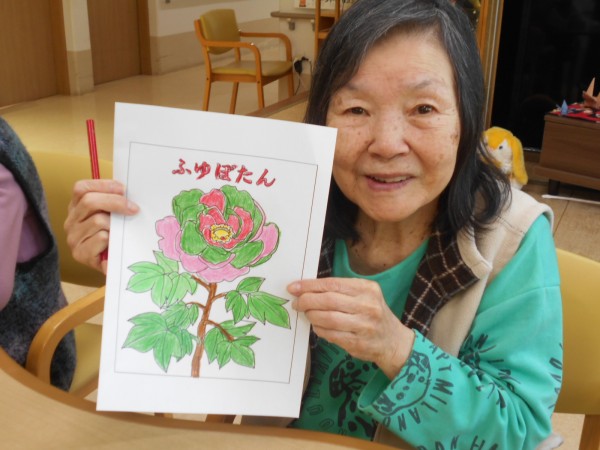 ふゆぼたん
MILANO